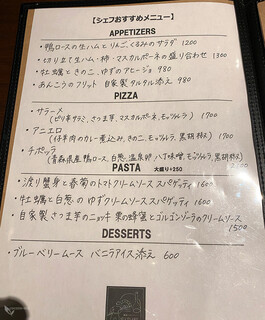 【シェフおすすめメニュー】
APPETIZERS
・鴨ロースの生ハムとりんご、くるみのサラダ 1200
・切り立て生ハム・柿・マスカルポーネの盛り合わせ 1300
・牡蠣ときのこ、ゆずのアヒージョ 980
・あんこうのフリット 自家製タルタル添え 980
PIZZA
・サラーメ
(ピリ辛サラミ、さつま芋、マスカルポーネ、モッツァレラ) 1700
・アニエロ
(仔羊肉のカレー煮込み、きのこ、モッツァレラ、黒胡椒) 1700
・チポッラ
(青森県産鴨ロース、白葱、温泉卵、八丁味噌、モッツァレラ、黒胡椒)
PASTA 大盛り+250
・渡り蟹身と春菊のトマトクリームソース スパゲッティ 1600
・牡蠣と白葱の ゆずクリームソーススパゲッティ 1600
・自家製さつま芋のニョッキ 栗の蜂蜜とゴルゴンゾーラのクリームソース
1500
DESSERTS
・ブルーベリームース バニラアイス添え 600